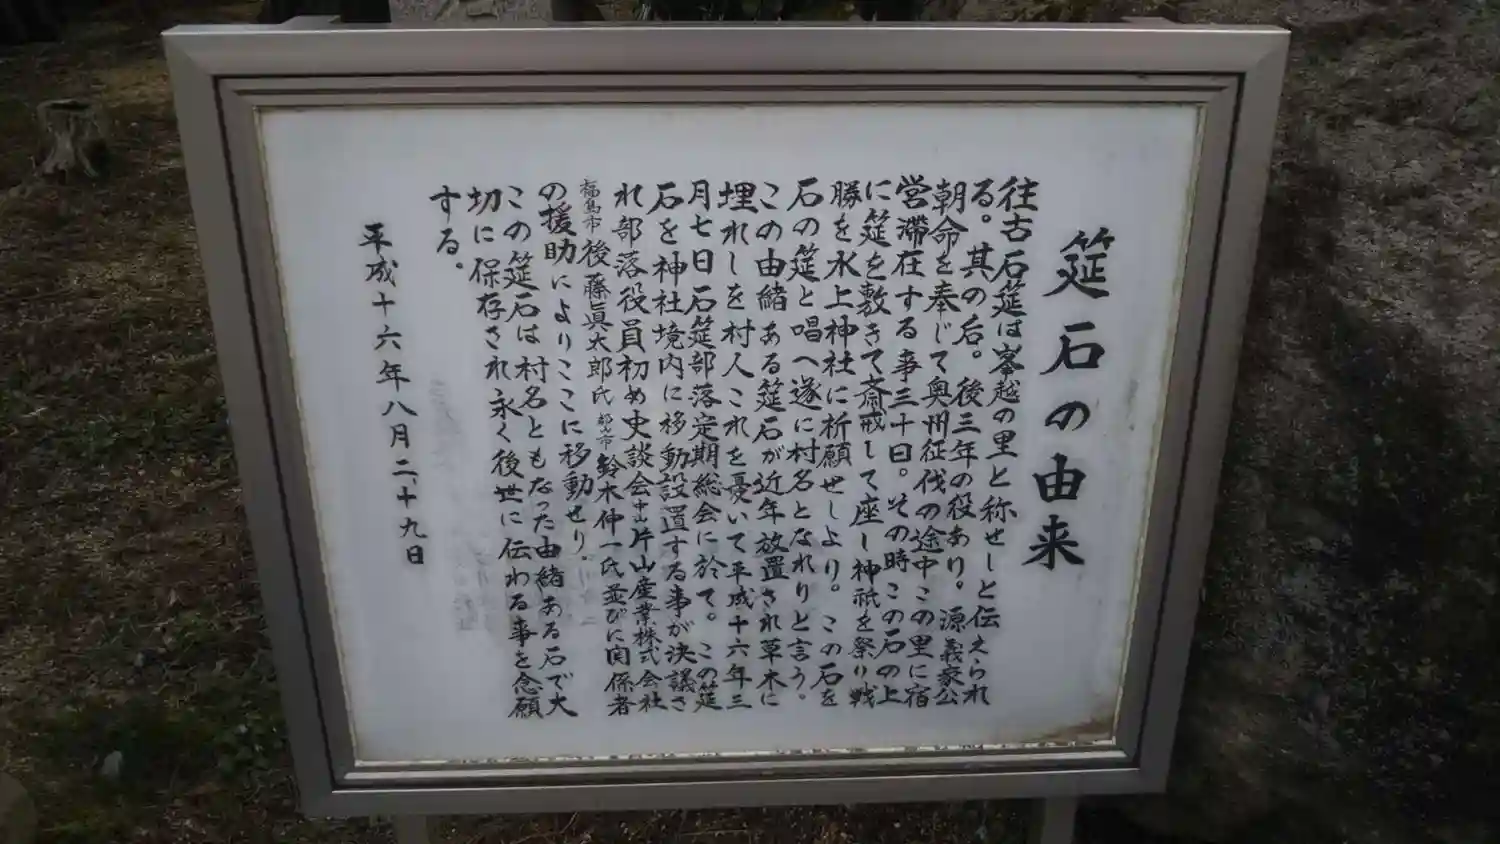 筵石の由来
往古石筵は峯越の里と称せしと伝えられ
る。其の后。後三年の役あり。源義家公
朝命を奉じて奥州征伐の途中この里に宿
営滞在する事三十日。その時この石の上
に筵を敷きて斎戒して座し神祇を祭り戦
勝を水上神社に祈願せしより。この石を
石の筵と唱へ遂に村名となれりと言う。
この由緒ある筵石が近年放置され草木に
埋れしを村人これを憂いて平成十六年三
月七日石筵部落定期総会に於て。この筵
石を神社境内に移動設置する事が決議さ
れ部落役員初め史談会中山片山産業株式会社
福島市後藤眞太郎氏郡山市鈴木仲一氏並びに関係者
の援助によりここに移動せり。
この筵石は村名ともなった由緒ある石で大
切に保存され永く後世に伝わる事を念願
する。
平成十六年八月二十九日